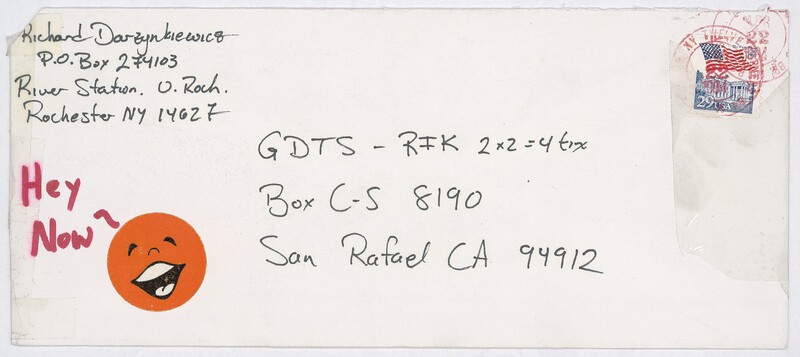 Richard Darzynkiewicz
P.O. Box 274103
River Station. U. Roch.
Rochester NY 14627
Hey
Now
GDTS - RFK 2x2=4 tix
Box C-S 8190
San Rafael CA 94912
29 USA